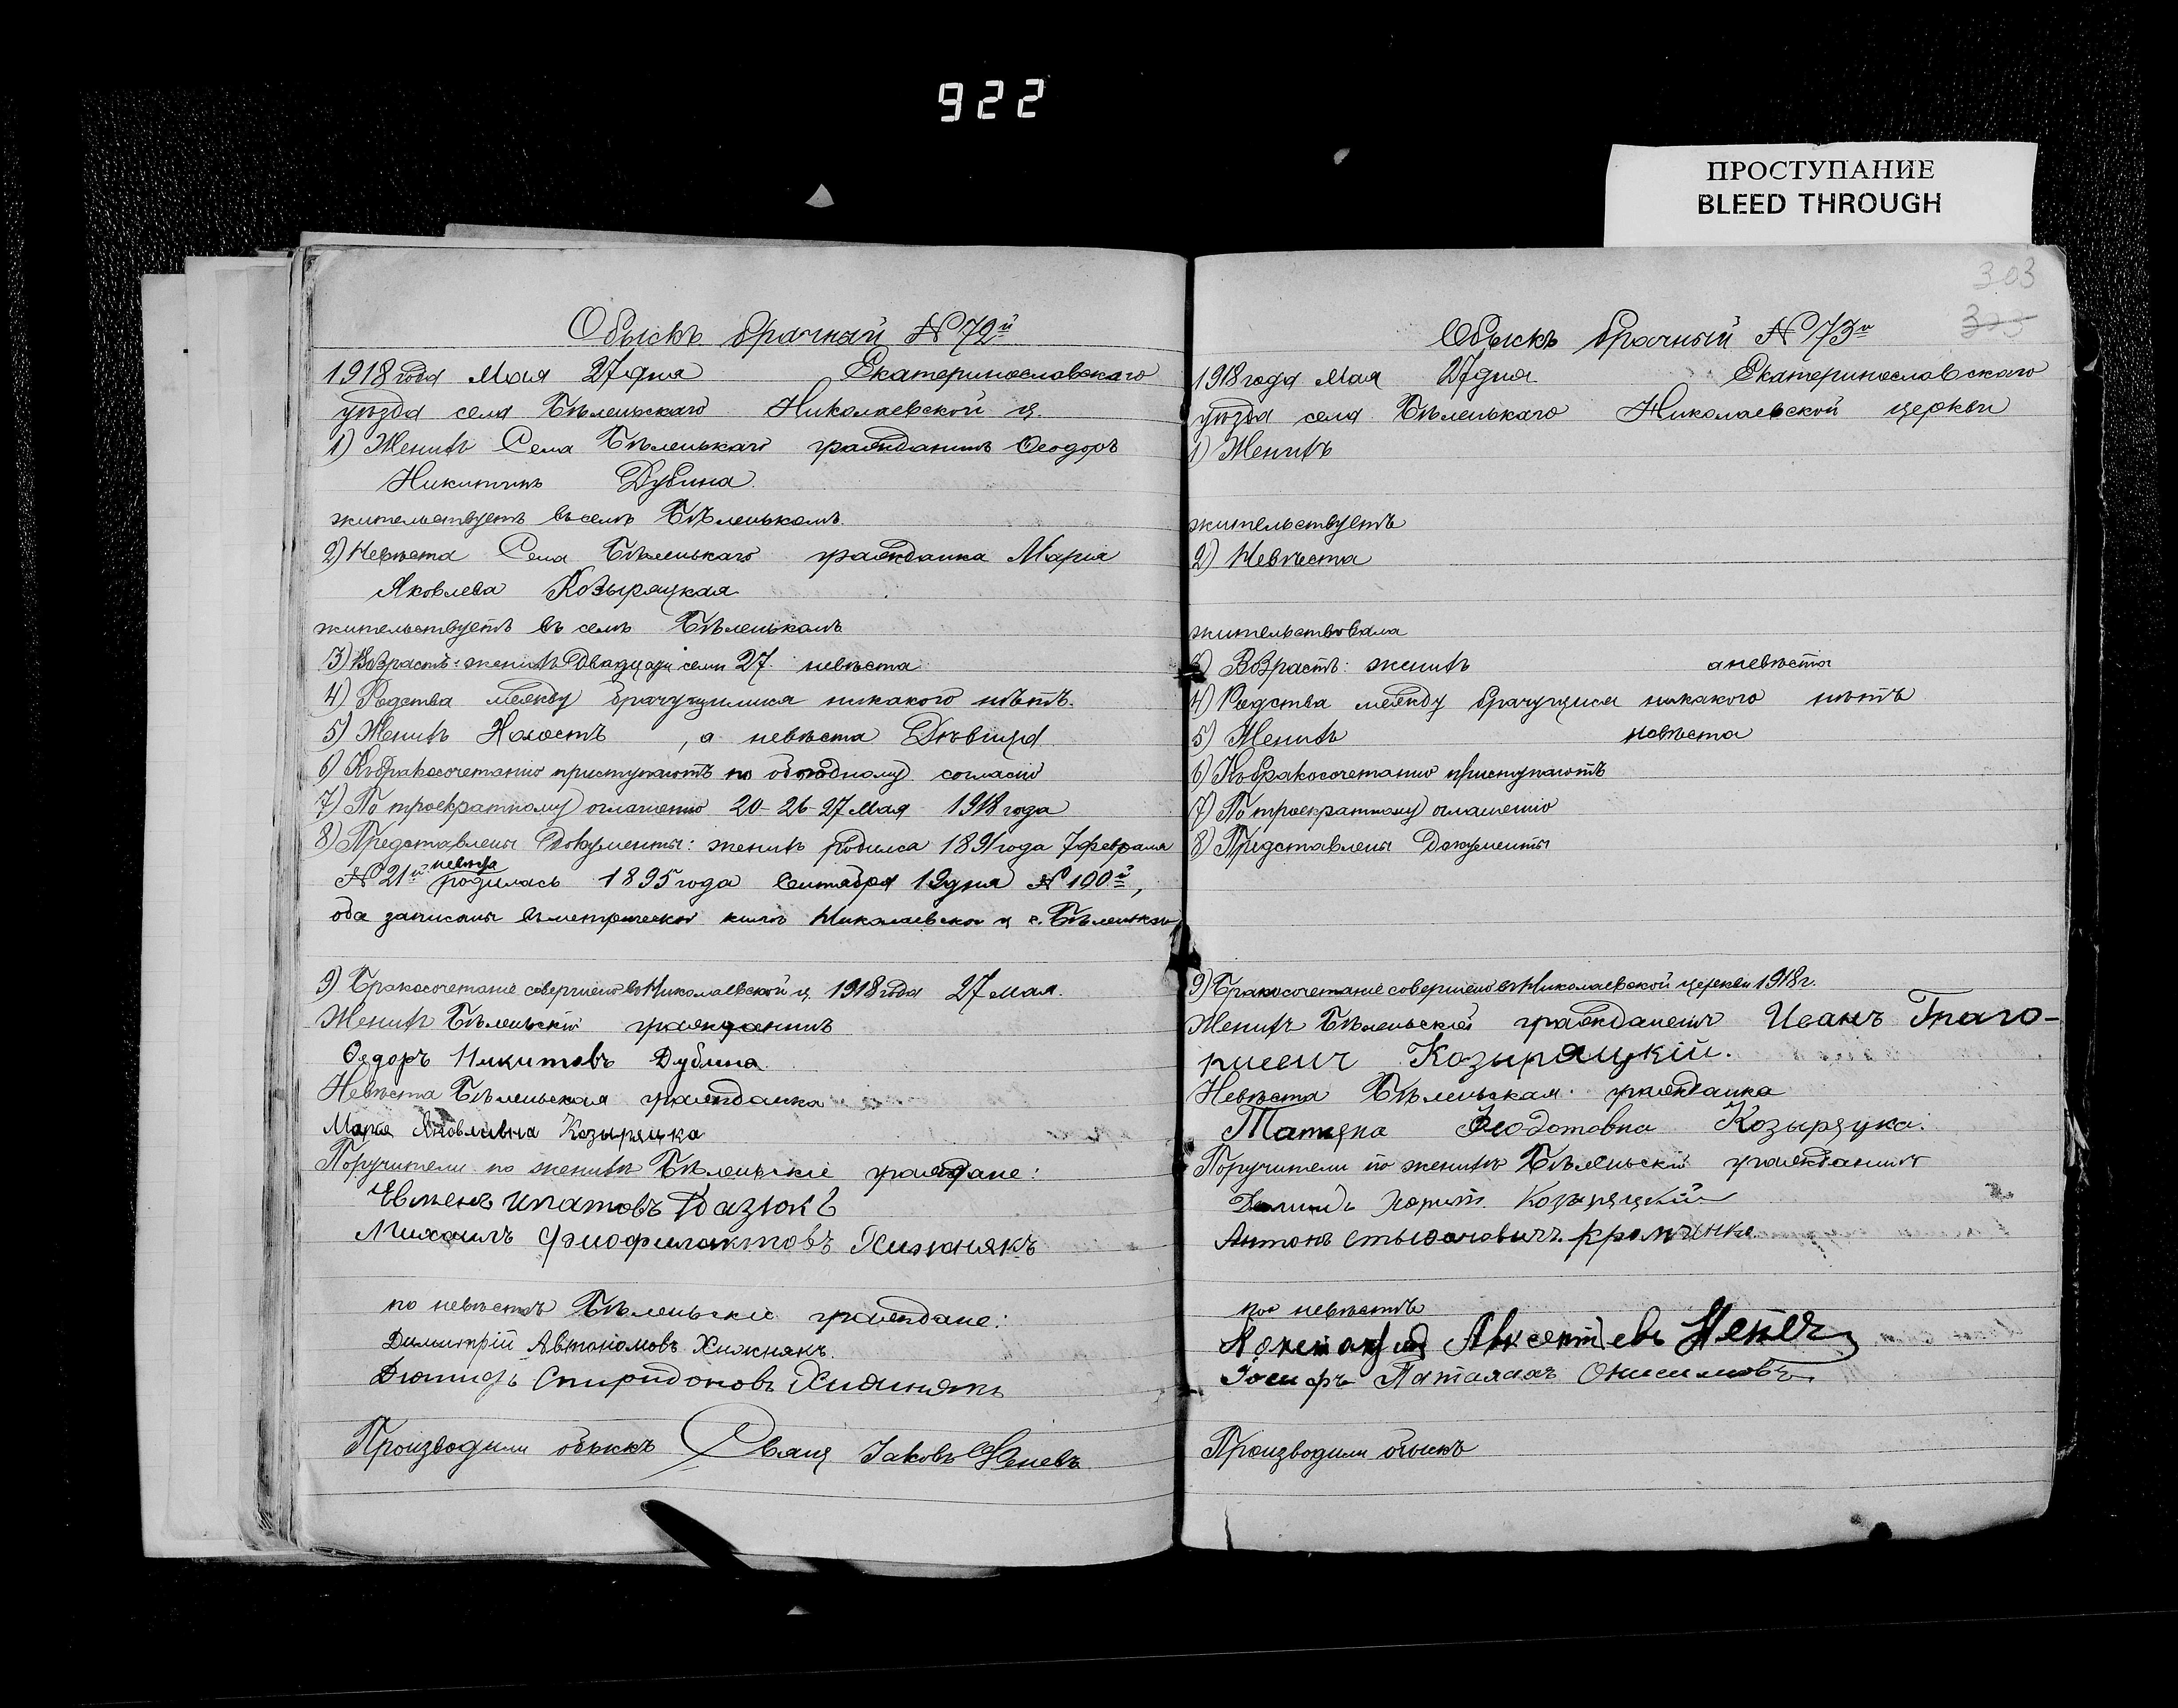 922
ПРОСТУПАНИЕ
BLEED THROUGH
Обыскъ брачный № 72й
1918 года Мая 27 дня Екатеринославскаго
уѣзда села Бѣленьскаго Николаевской ц.
1) Женихъ Села Бѣленькаго гражданинъ Ѳеодоръ
Никитинъ Дубина
жительствуетъ въ селѣ Бѣленькомъ.
2) Невѣста Села Бѣленькаго гражданка Марія
Яковлева Козыряцкая
жительствуетъ въ селѣ Бѣленькомъ
3) Возрастъ: женихъ двадцати семи 27. невѣста
4) Родства между брачущимися никакого нѣтъ.
5) Женихъ Холостъ, а невѣста Дѣвица
6) Къ бракосочетанію приступаютъ по обоюдному согласію
7) По троекратному оглашенію 20-26-27 Мая 1918 года
8) Представлены Документы: женихъ родился 1891 года 7 февраля
№ 21й невѣста родилась 1895 года Сентября 19 дня № 100й,
оба записаны въ метрической книгѣ Николаевской ц с. Бѣленькаго
9) Бракосочетаніе совершено въ Николаевской ц. 1918 года 27 мая.
Женихъ Бѣленьскій гражданинъ
Ѳедоръ Никитовъ Дубина
Невѣста Бѣленьская гражданка
Марія Яковливна Козыряцка
Поручители по женихѣ Бѣленьскіе граждане:
Евменъ Ипатовъ
Михаилъ Фиофилактовъ Хижнякъ
по невѣстѣ Бѣленьскіе граждане:
Димитрій Автономовъ Хижнякъ.
Спиридоновъ Хижнякъ
Производили обыскъ Свящ Іаковъ
303
Обыскъ брачный № 73й
1918 года Мая 27 дня Екатеринославскаго
уѣзда села Бѣленькаго Николаевской церкви
1) Женихъ
жительствуетъ
2) Невѣста
жительствовала
3) Возрастъ: женихъ а невѣста
4) Родства между брачущися никакого нѣтъ
5) Женихъ невѣста
6) Къ бракосочетанію приступаютъ
7) По троекратному оглашенію
8) Представлены Документы
9) Бракосочетаніе совершено въ Николаевской церкви 1918 г.
Женихъ Бѣленьскій гражданинъ Иванъ
Козыряцкій.
Невѣста Бѣленьская гражданка
Татяна Феодотовна Козыряцка.
Поручители по женихѣ Бѣленьскій гражданинъ
Козыряцкій
Антонъ
по невѣстѣ
Авксентіевъ
Іосифъ Онисимовъ
Производили обыскъ